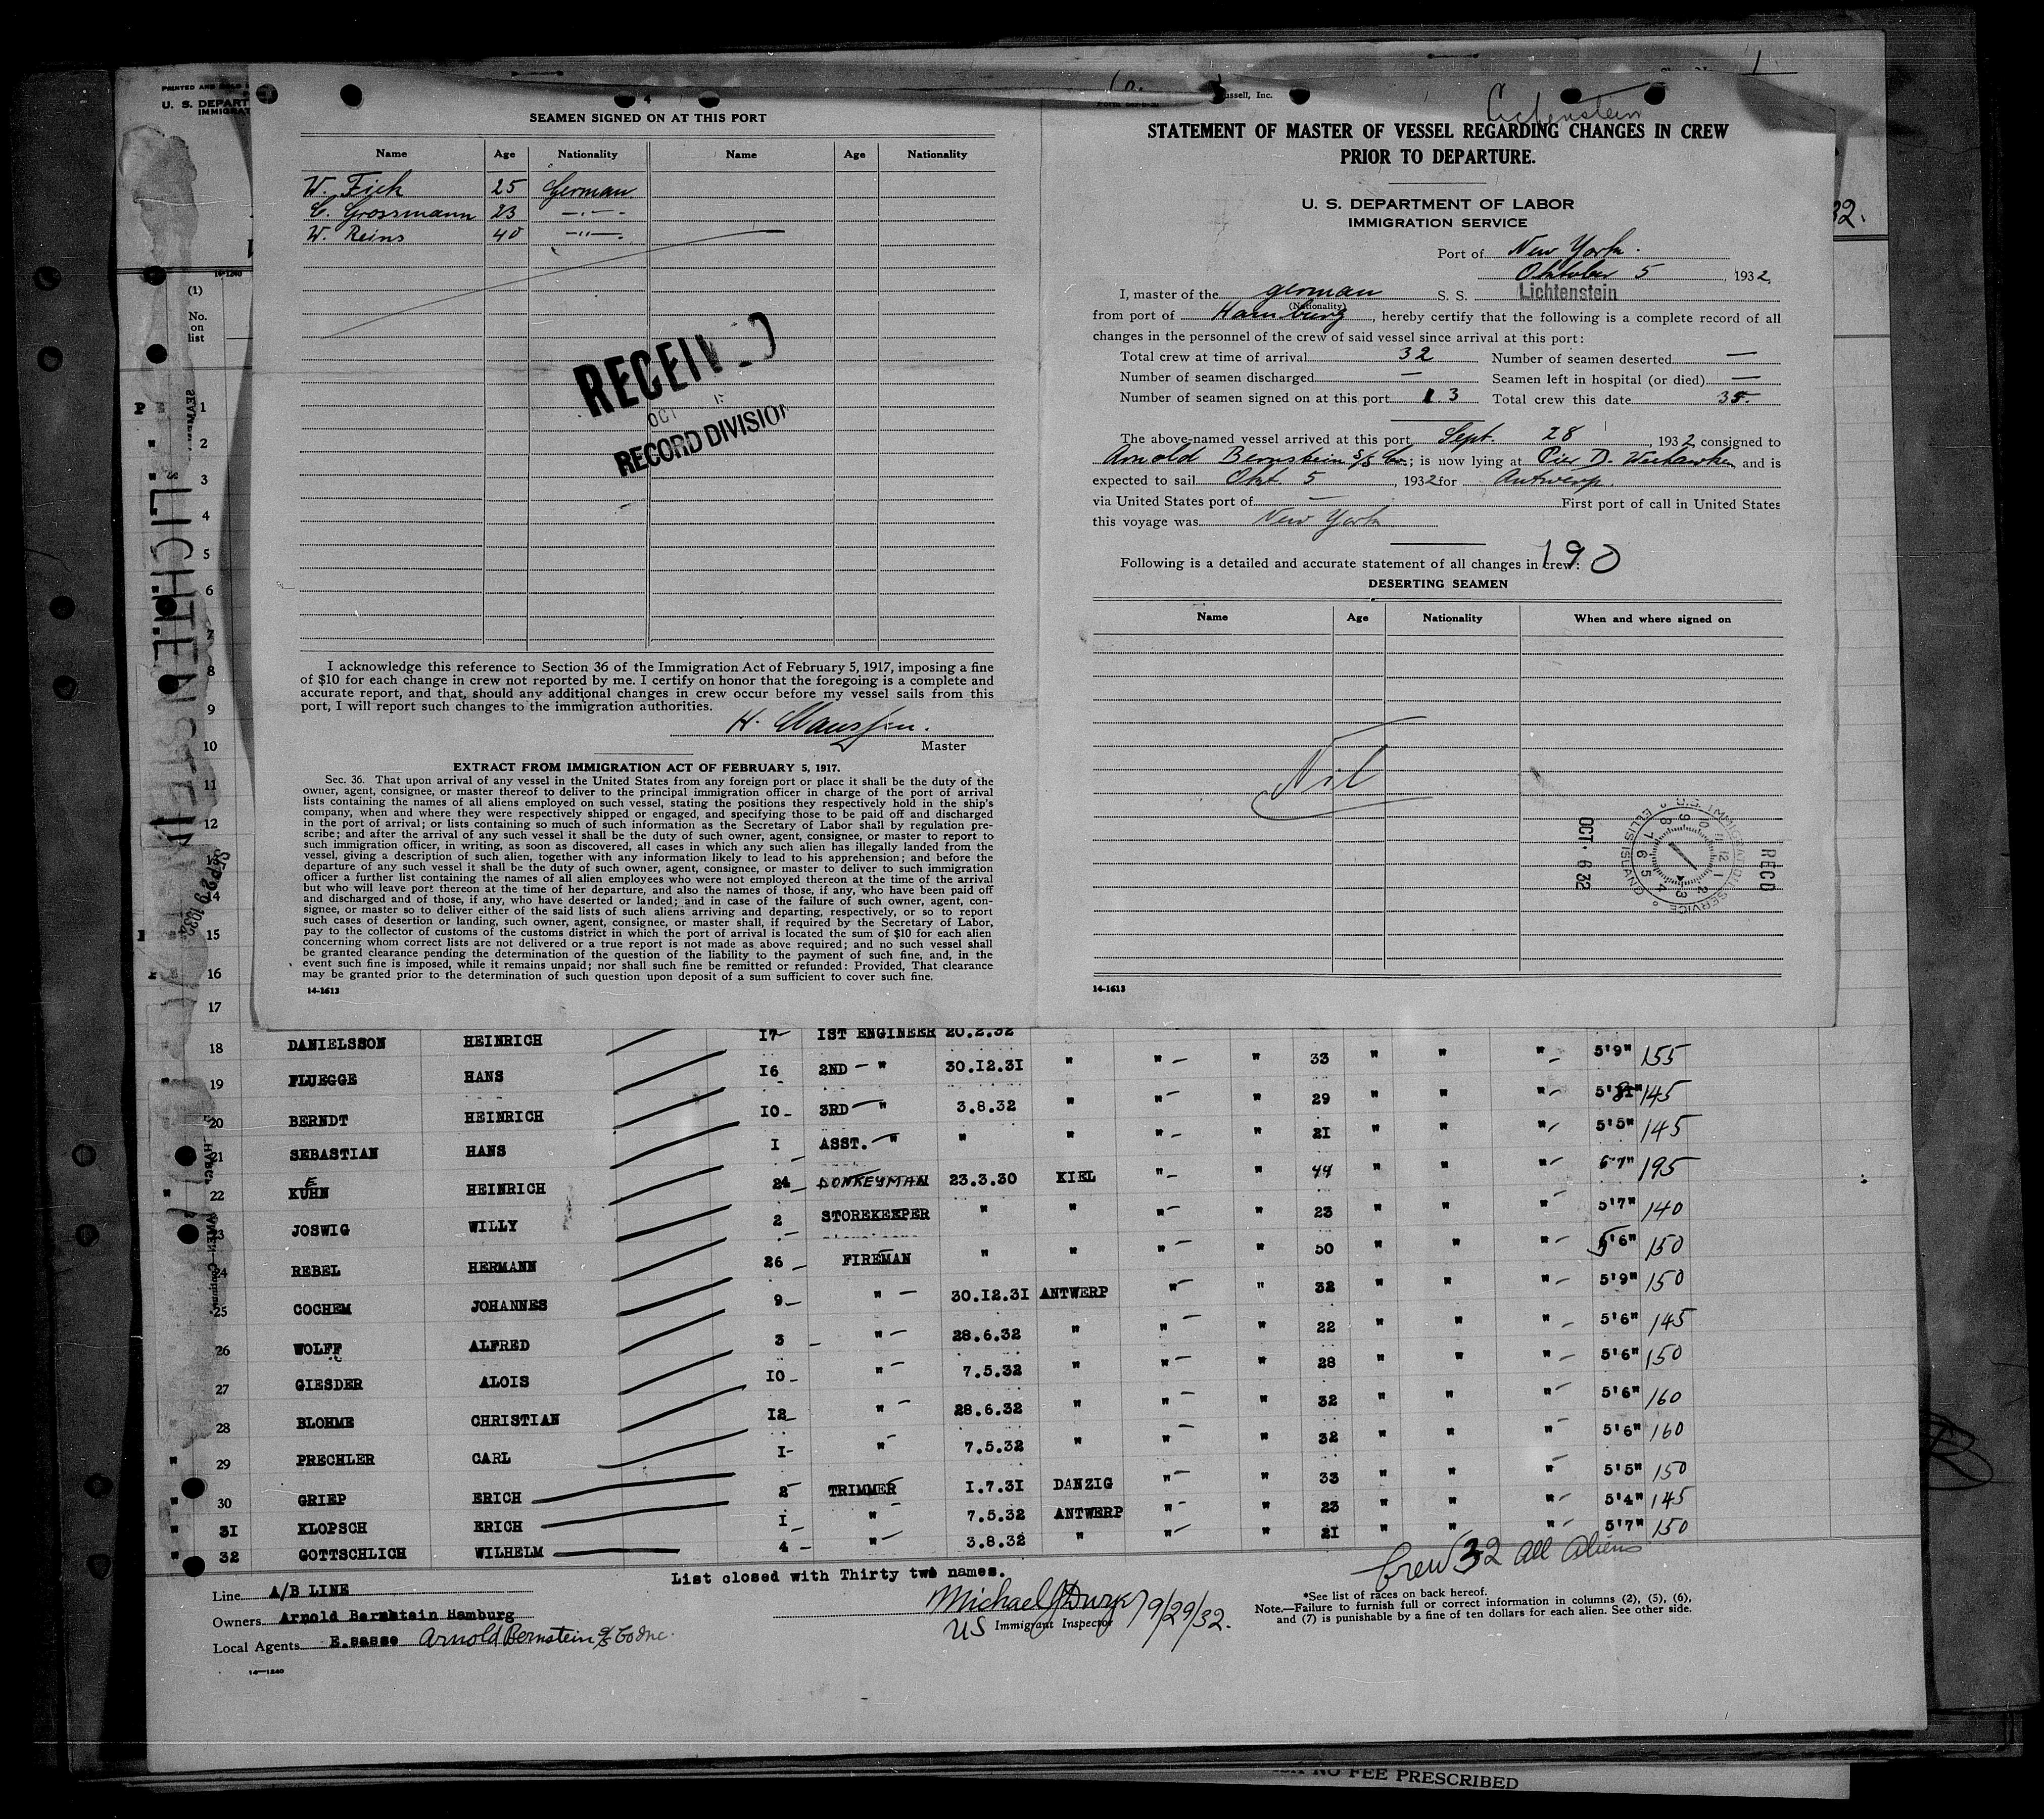 PRINTED AND SOLD
U. S. DEPART
IMMIGRAT
14-1240
(1)
No.
on
list
LICHTENSTEIN
SEP 29 1932
4
SEAMEN SIGNED ON AT THIS PORT
Name Age Nationality Name Age Nationality
W. Fick 25 German
C. Grossmann 23 —"—
W. Reins 40 —"—
RECEIVED
OCT
RECORD DIVISION
I acknowledge this reference to Section 36 of the Immigration Act of February 5, 1917, imposing a fine
of $10 for each change in crew not reported by me. I certify on honor that the foregoing is a complete and
accurate report, and that, should any additional changes in crew occur before my vessel sails from this
port, I will report such changes to the immigration authorities.
H. Claussen.
Master
EXTRACT FROM IMMIGRATION ACT OF FEBRUARY 5, 1917.
Sec. 36. That upon arrival of any vessel in the United States from any foreign port or place it shall be the duty of the
owner, agent, consignee, or master thereof to deliver to the principal immigration officer in charge of the port of arrival
lists containing the names of all aliens employed on such vessel, stating the positions they respectively hold in the ship's
company, when and where they were respectively shipped or engaged, and specifying those to be paid off and discharged
in the port of arrival; or lists containing so much of such information as the Secretary of Labor shall by regulation pre-
scribe; and after the arrival of any such vessel it shall be the duty of such owner, agent, consignee, or master to report to
such immigration officer, in writing, as soon as discovered, all cases in which any such alien has illegally landed from the
vessel, giving a description of such alien, together with any information likely to lead to his apprehension; and before the
departure of any such vessel it shall be the duty of such owner, agent, consignee, or master to deliver to such immigration
officer a further list containing the names of all alien employees who were not employed thereon at the time of the arrival
but who will leave port thereon at the time of her departure, and also the names of those, if any, who have been paid off
and discharged and of those, if any, who have deserted or landed; and in case of the failure of such owner, agent, con-
signee, or master so to deliver either of the said lists of such aliens arriving and departing, respectively, or so to report
such cases of desertion or landing, such owner, agent, consignee, or master shall, if required by the Secretary of Labor,
pay to the collector of customs of the customs district in which the port of arrival is located the sum of $10 for each alien
concerning whom correct lists are not delivered or a true report is not made as above required; and no such vessel shall
be granted clearance pending the determination of the question of the liability to the payment of such fine, and, in the
event such fine is imposed, while it remains unpaid; nor shall such fine be remitted or refunded: Provided, That clearance
may be granted prior to the determination of such question upon deposit of a sum sufficient to cover such fine.
14-1613
ussell, Inc.
Lichtenstein
1
STATEMENT OF MASTER OF VESSEL REGARDING CHANGES IN CREW
PRIOR TO DEPARTURE.
U. S. DEPARTMENT OF LABOR
IMMIGRATION SERVICE
Port of New York.
Oktober 5, 1932
I, master of the german S. S. Lichtenstein
(Nationality)
from port of Hamburg, hereby certify that the following is a complete record of all
changes in the personnel of the crew of said vessel since arrival at this port:
Total crew at time of arrival 32 Number of seamen deserted —
Number of seamen discharged — Seamen left in hospital (or died) —
Number of seamen signed on at this port 3 Total crew this date 35.
The above-named vessel arrived at this port Sept. 28, 1932 consigned to
Arnold Bernstein S/S Co.; is now lying at Pier D. Weehawken and is
expected to sail Okt. 5, 1932 for Antwerp.
via United States port of — First port of call in United States
this voyage was New York
Following is a detailed and accurate statement of all changes in crew: 190
DESERTING SEAMEN
Name Age Nationality When and where signed on
Nil
RECD
U.S. IMMIGRATION SERVICE ELLIS ISLAND
OCT 6 32
14-1613
32.
1
2
3
4
5
6
8
9
10
11
12
14
15
16
17
18 DANIELSSON HEINRICH 17 1ST ENGINEER 20.2.32
19 FLUEGGE HANS 16 2ND — " 30.12.31 " " — " 33 " " " — 5'9" 155
20 BERNDT HEINRICH 10 3RD — " 3.8.32 " " — " 29 " " " — 145
21 SEBASTIAN HANS 1 ASST. — " " " " — " 21 " " " — 5'5" 145
22 KUEHN HEINRICH 24 DONKEYMAN 23.3.30 KIEL " — " 44 " " " — 5'7" 195
23 JOSWIG WILLY 2 STOREKEEPER " " " — " 23 " " " — 5'7" 140
24 REBEL HERMANN 26 FIREMAN " " " — " 50 " " " — 5'6" 150
25 COCHEM JOHANNES 9 " — 30.12.31 ANTWERP " — " 32 " " " — 5'9" 150
26 WOLFF ALFRED 3 " — 28.6.32 " " — " 22 " " " — 5'6" 145
27 GIESDER ALOIS 10 " — 7.5.32 " " — " 28 " " " — 5'6" 150
28 BLOHME CHRISTIAN 12 " — 28.6.32 " " — " 32 " " " — 5'6" 160
29 PRECHLER CARL 1 " — 7.5.32 " " — " 32 " " " — 5'6" 160
30 GRIEP ERICH 2 TRIMMER 1.7.31 DANZIG " — " 33 " " " — 5'5" 150
31 KLOPSCH ERICH 1 " 7.5.32 ANTWERP " — " 23 " " " — 5'4" 145
32 GOTTSCHLICH WILHELM 4 " — 3.8.32 " " — " 21 " " " — 5'7" 150
List closed with Thirty two names.
Crew 32 all aliens
Line A/B LINE
Owners Arnold Bernstein Hamburg
Local Agents E.sasse Arnold Bernstein S/S Co Inc.
14—1240
9/29/32.
US Immigrant Inspector
*See list of races on back hereof.
Note.—Failure to furnish full or correct information in columns (2), (5), (6),
and (7) is punishable by a fine of ten dollars for each alien. See other side.
NO FEE PRESCRIBED